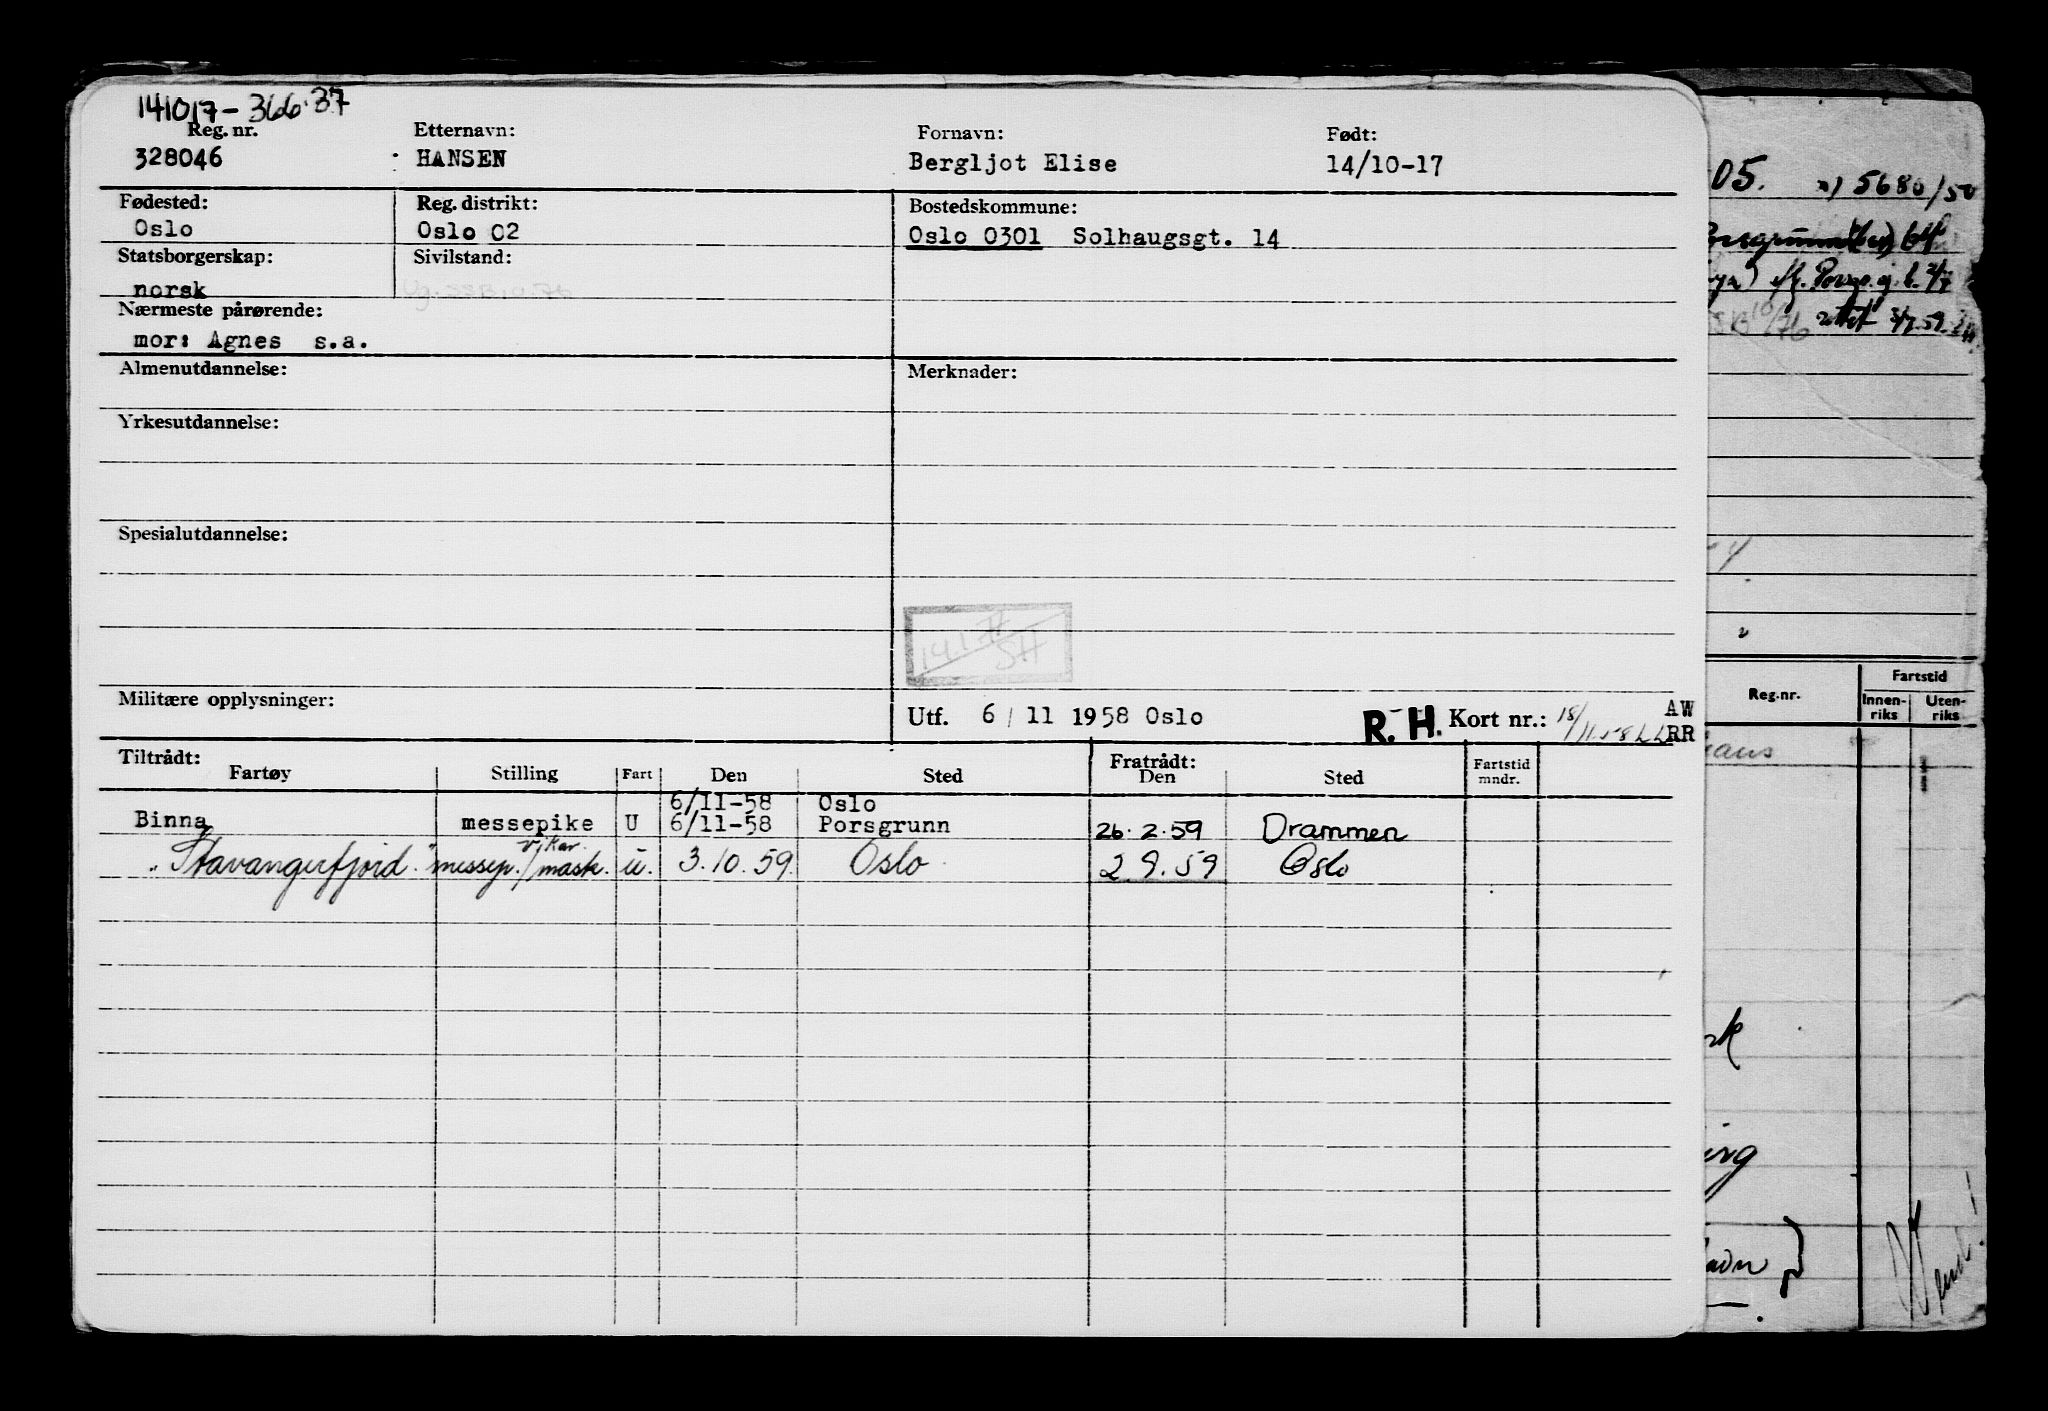 141017-366.37
Reg. nr. Etternavn: Fornavn: Født:
328046 HANSEN Bergljot Elise 14/10-17
Fødested: Reg. distrikt: Bostedskommune:
Oslo Oslo 02 Oslo 0301 Solhaugsgt. 14
Statsborgerskap: Sivilstand:
norsk
Nærmeste pårørende:
mor: Agnes s.a.
Almenutdannelse: Merknader:
Yrkesutdannelse:
Spesialutdannelse:
14.1.
SH
Militære opplysninger:
Utf. 6/11 1958 Oslo R.H. Kort nr.: AW
RR
Tiltrådt: Fratrådt:
Fartøy Stilling Fart Den Sted Den Sted Fartstid mndr.
6/11-58 Oslo
Binna messepike U 6/11-58 Porsgrunn 26.2.59 Drammen
"Stavangerfjord" messep./mask. vikar. u. 3.10.59 Oslo 2 9.59 Oslo
05. x) 5680/50
10/76
Reg.nr. Fartstid
Innen-riks Uten-riks
Vend!